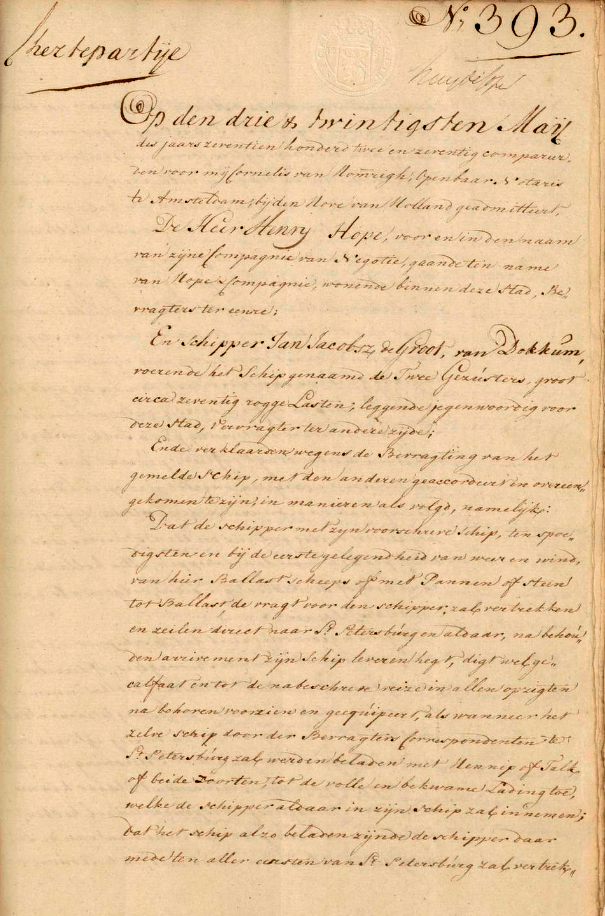 N.o 393.
Chertepartije
Op den drie & twintigsten Maij
des jaars zeventien honderd twee en zeventig compareer,,
den voor mij Cornelis van Homrigh, Openbaar Notaris
te Amsterdam, bij den Hove van Holland geadmitteert,
De Heer Henry Hope, voor en in den naam
van zijne Compagnie van Negotie, gaande ten name
van Hope & Compagnie, wonende binnen deze Stad, Be,,
vragters ter eenre;
En Schipper Jan Jacobsz de Groot, van Dokkum,
voerende het Schip genaamd de Twee Gezusters, groot
circa zeventig rogge Lasten; leggende jegenwoordig voor
deze Stad, Vervragter ter andere zijde;
Ende verklaarden wegens de Bevragting van het
gemelde Schip, met den anderen geaccordeert en overeen,,
gekomen te zijn, in manieren als volgd, namelijk:
Dat de Schipper met zijn voorschreve Schip, ten spoe,,
digsten en bij de eerste gelegendheid van weer en wind,
van hier Ballast scheeps of met Pannen of Steen
tot Ballast de vragt voor den schipper, zal vertrekken
en zeilen direct naar St. Petersburg en aldaar, na behou,,
den arrivement zijn Schip leveren hegt, digt wel ge,,
calfaat en tot de nabeschreve reize in allen opzigten
na behoren voorzien en geequipeert, als wanneer het
zelve schip door der Bevragters Correspondenten te
St. Petersburg zal werden beladen met Hennip of Talk
of beide Zoorten, tot de volle en bekwame Lading toe,
welke de schipper aldaar in zijn Schip zal innemen;
dat het schip alzo beladen zijnde de schipper daar
mede ten aller eersten van St. Petersburg zal vertrek,,